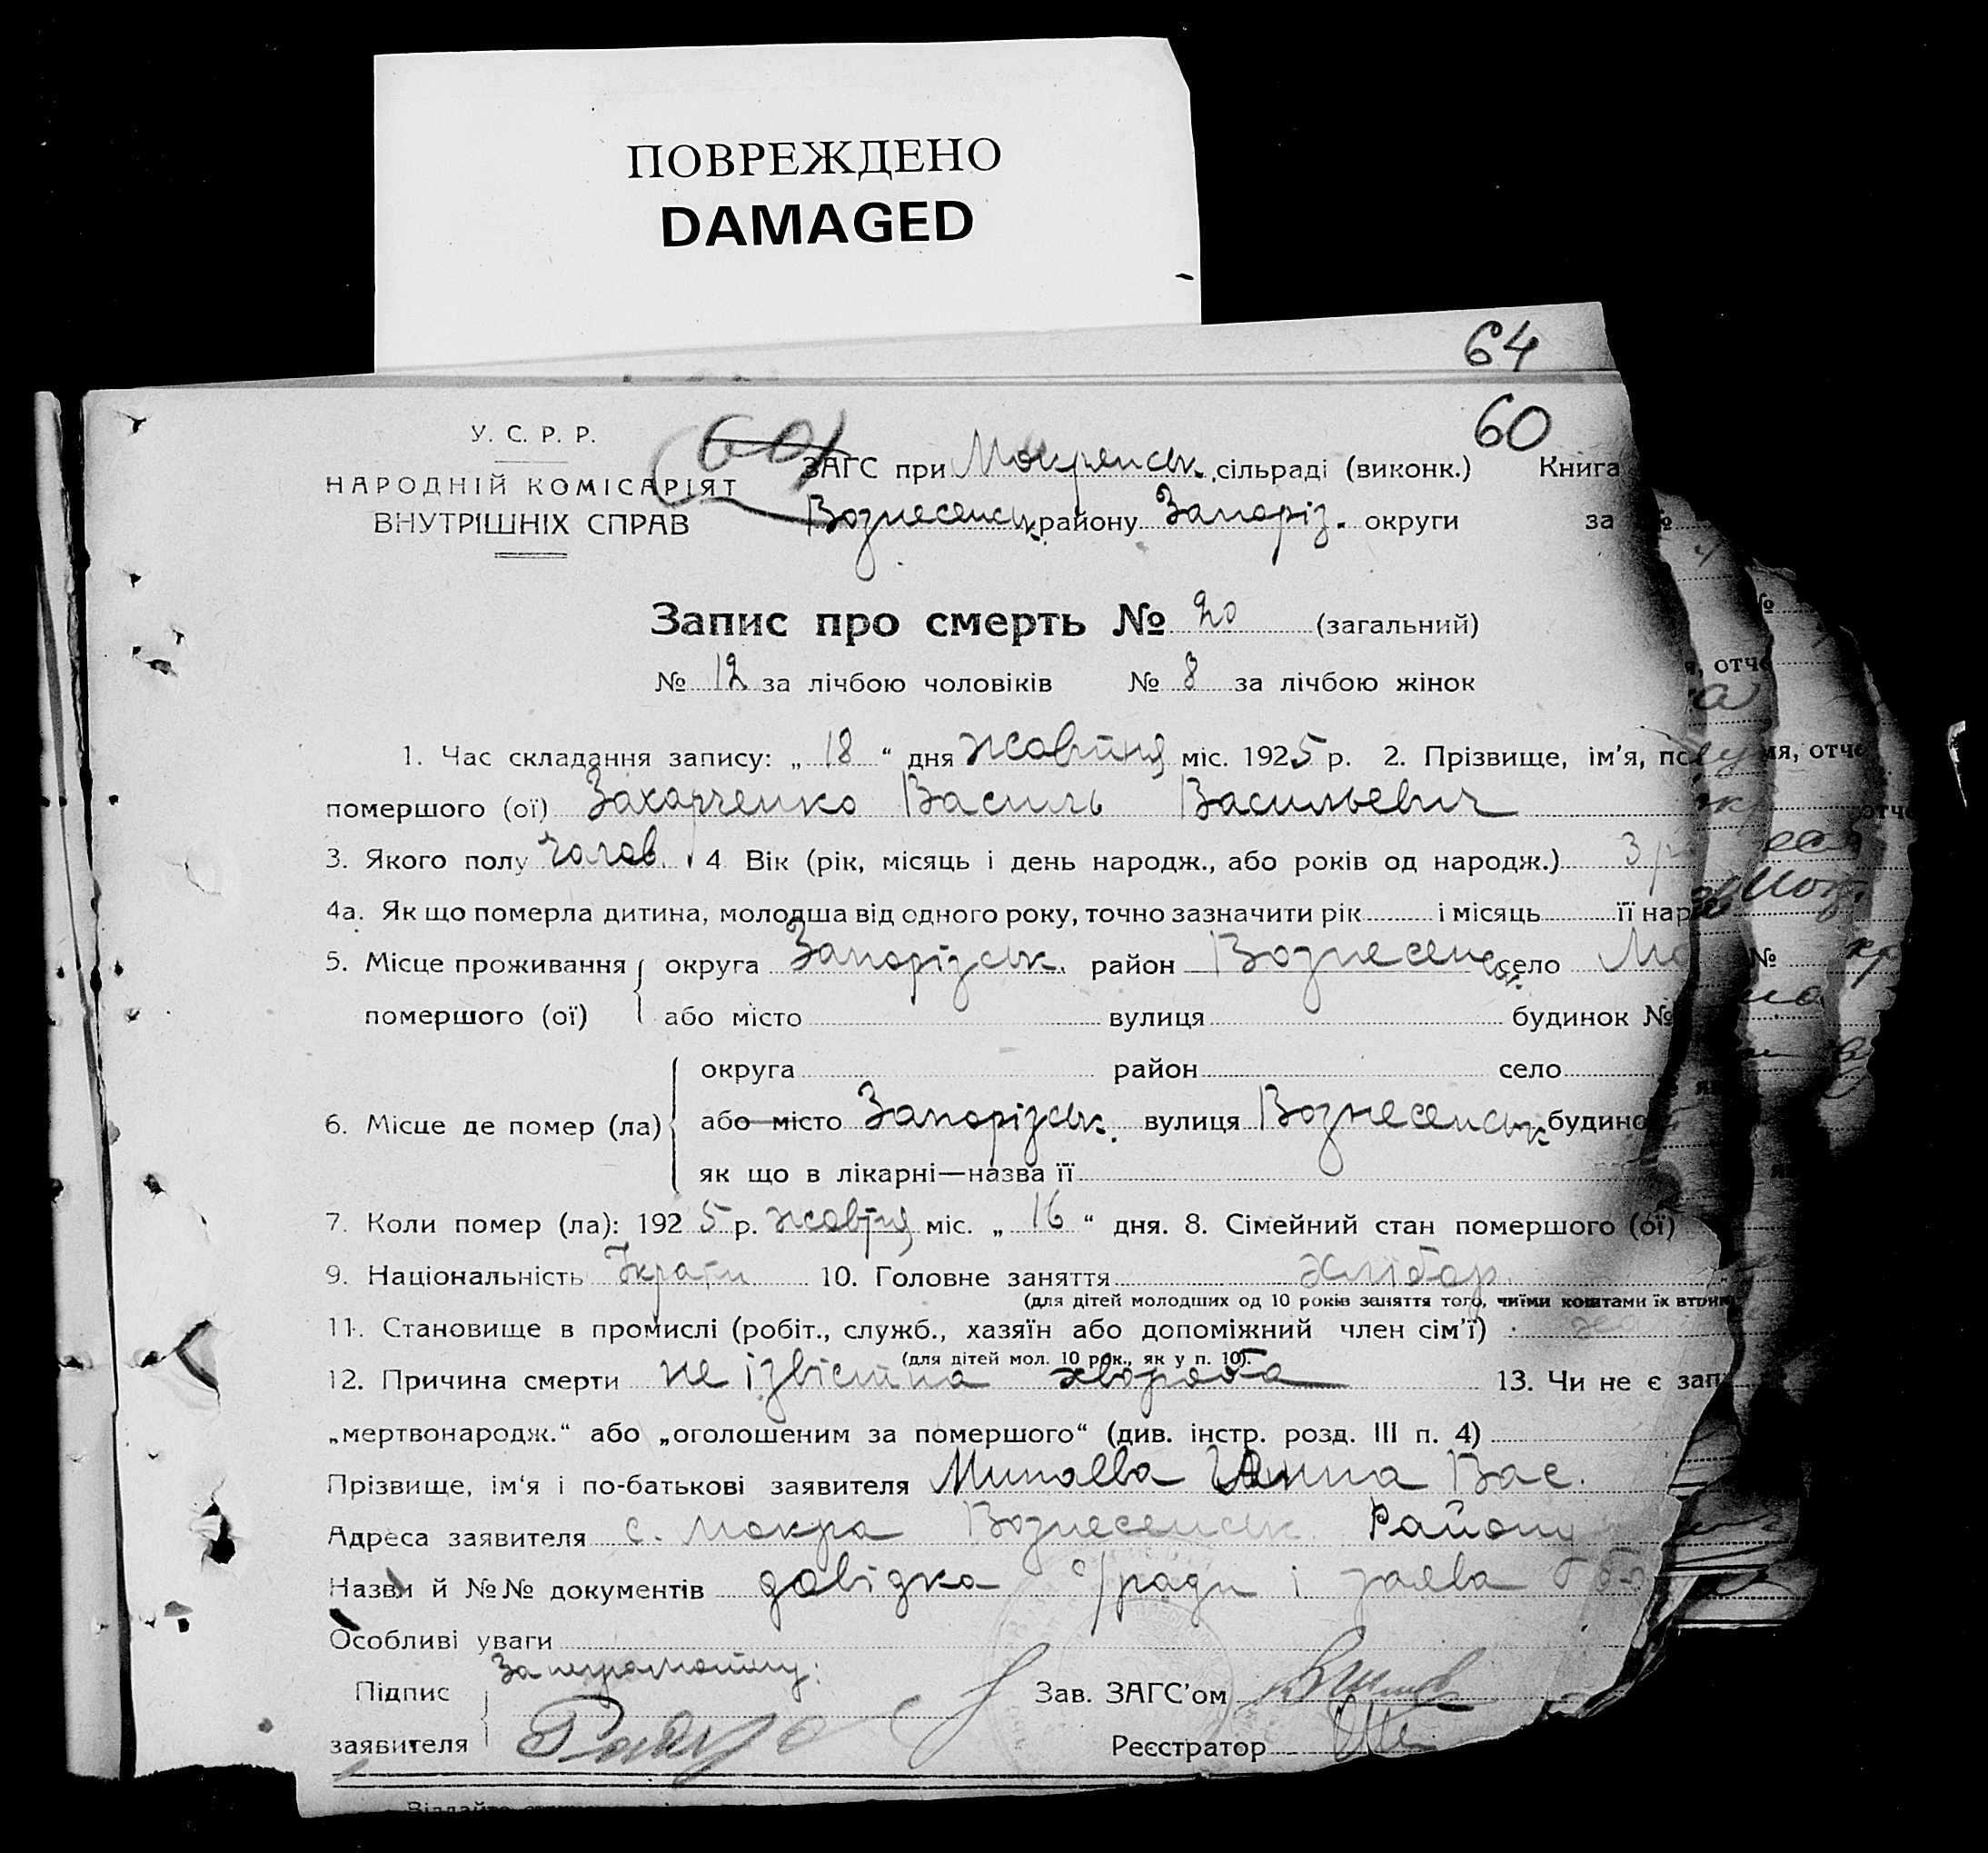 ПОВРЕЖДЕНО
DAMAGED
64
60
У. С. Р. Р.
НАРОДНІЙ КОМІСАРІЯТ
ВНУТРІШНІХ СПРАВ
60
ЗАГС при Мокрянськ. сільраді (виконк.) Книга
Вознесенськ. району Запоріз. округи за №
Запис про смерть № 20 (загальний)
№ 12 за лічбою чоловіків № 8 за лічбою жінок
1. Час складання запису: „ 18 “ дня жовтня міс. 1925 р. 2. Прізвище, ім'я, по
помершого (ої) Захарченко Василь Васильевич
3. Якого полу чолов. 4 Вік (рік, місяць і день народж., або років од народж.) 3 р
4а. Як що померла дитина, молодша від одного року, точно зазначити рік і місяць її нар
5. Місце проживання округа Запорізськ. район Вознесенськ. село Мо
помершого (ої) або місто вулиця будинок №
округа район село
6. Місце де помер (ла) або місто Запорізськ. вулиця Вознесенськ будино
як що в лікарні—назва її
7. Коли помер (ла): 1925 р. жовтня міс. „ 16 “ дня. 8. Сімейний стан помершого (ої)
9. Національність Україн 10. Головне заняття хлібор.
(для дітей молодших од 10 років заняття того, чиїми коштами їх втрим
11. Становище в промислі (робіт., служб., хазяїн або допоміжний член сім'ї)
(для дітей мол. 10 рок., як у п. 10).
12. Причина смерти не ізвістна хвороба 13. Чи не є зап
„мертвонародж.“ або „оголошеним за помершого“ (див. інстр. розд. III п. 4)
Прізвище, ім'я і по-батькові заявителя Минаева Ганна Вас.
Адреса заявителя с. Мокра Вознесенськ Району
Назви й №№ документів довідка с/ради і заява
Особливі уваги
За неграмотну:
Підпис
заявителя
Зав. ЗАГС'ом
Реєстратор